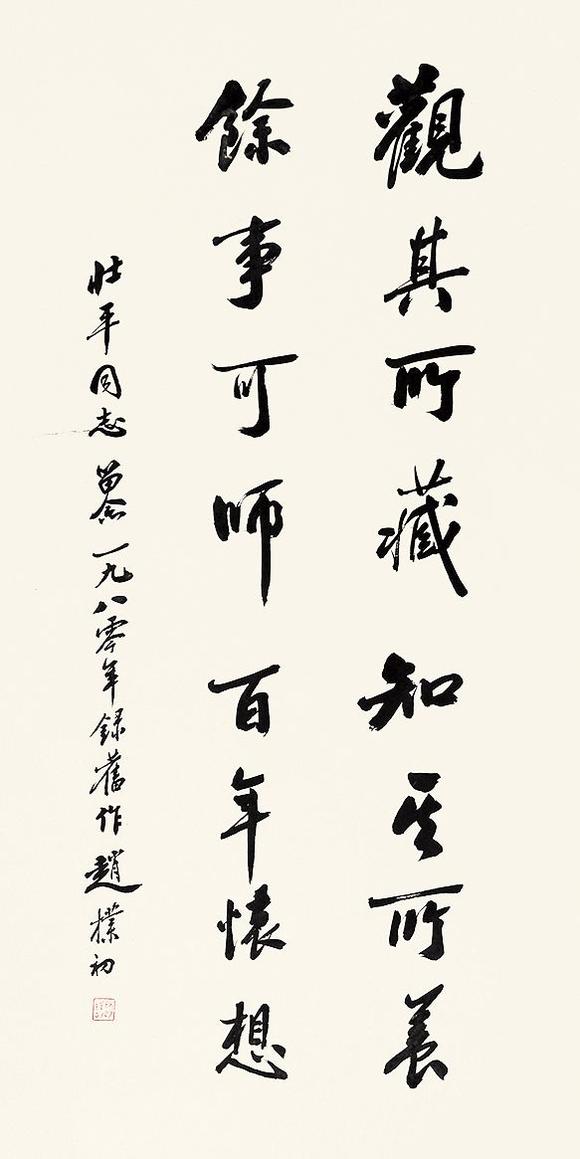 觀其所藏知其所養
餘事可師百年懷想
壯平同志留念一九八零年錄舊作趙樸初